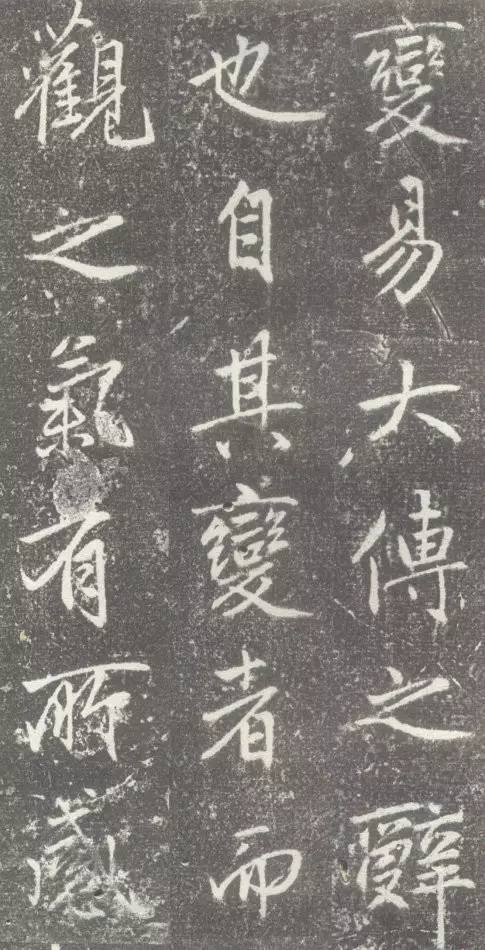 變易大傳之辭
也自其變者而
觀之氣有所感